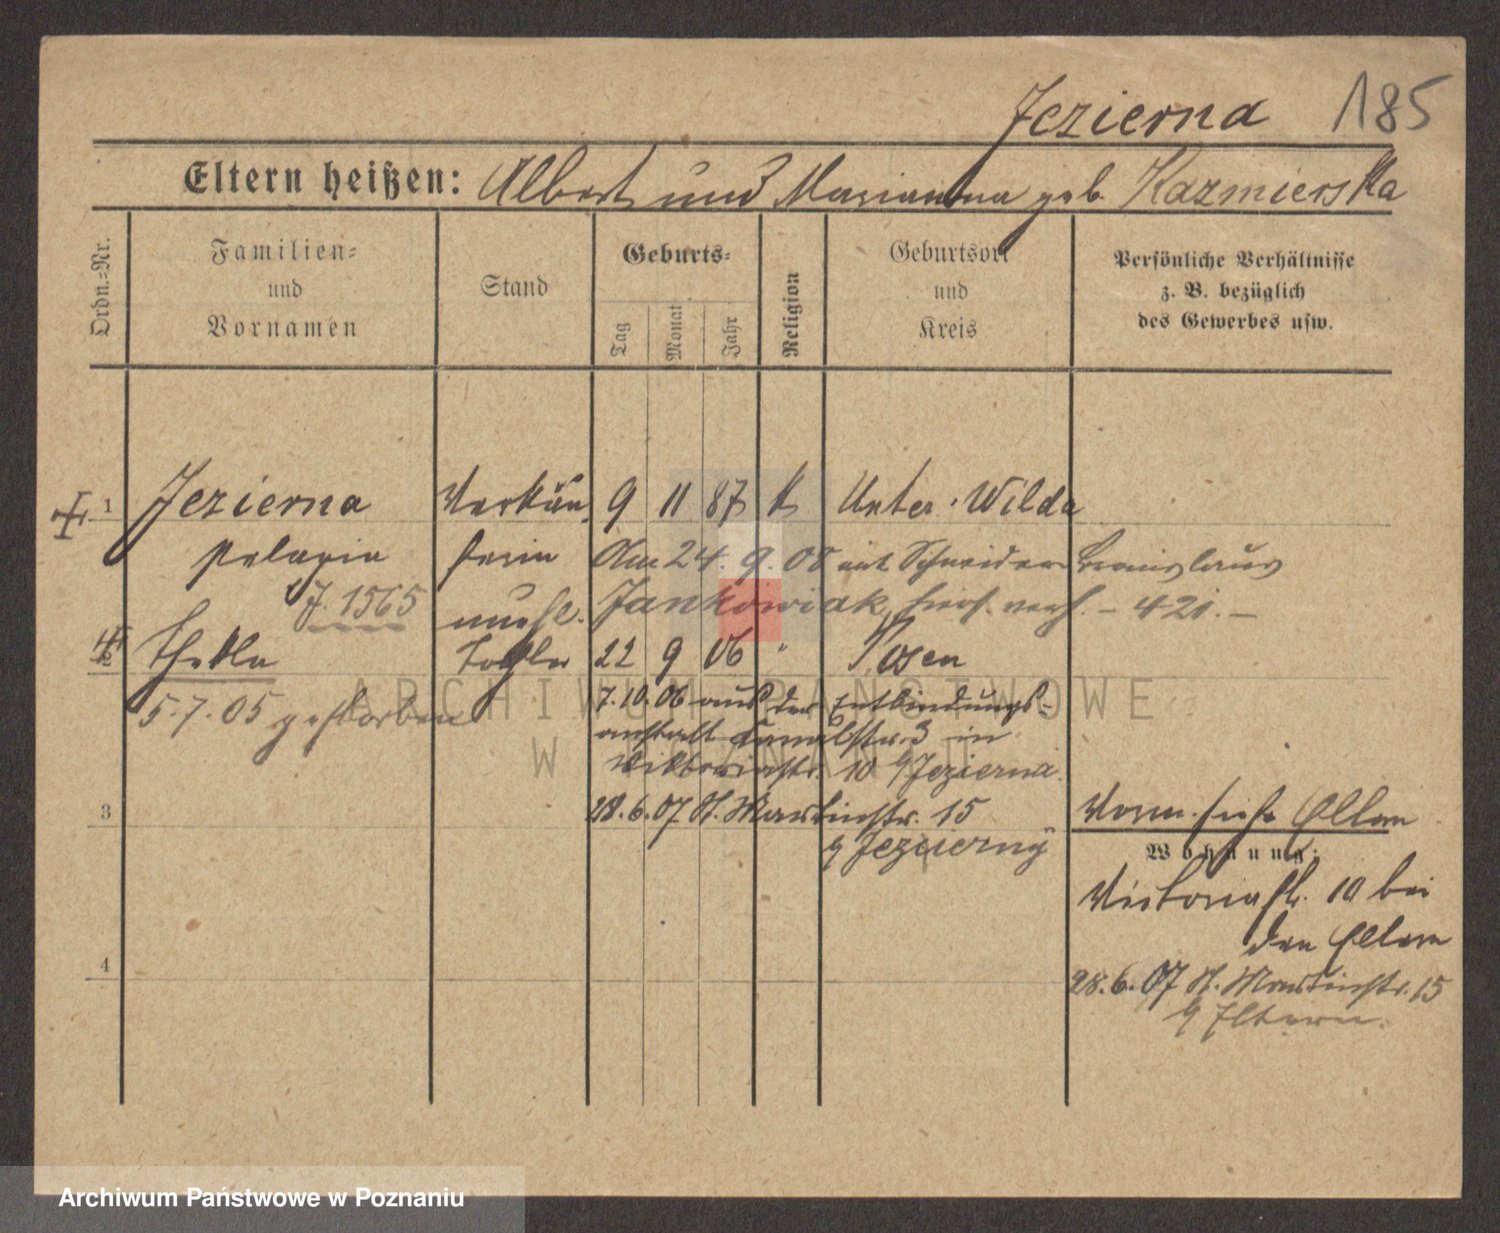 Jezierna 185
Eltern heißen: Albert und Marianna geb. Kazmierska
Ordn.-Nr.
Familien-
und
Vornamen
Stand
Geburts-
Tag
Monat
Jahr
Religion
Geburtsort
und
Kreis
Persönliche Verhältnisse
z. B. bezüglich
des Gewerbes usw.
1 Jezierna Verkäu- 9 11 87 k Unter-Wilda
Pelagia ferin Am 24. 9. 08 mit Schneider
J. 1565
unehl. Jankowiak, - 421. -
2 Thekla Tochter 22 9 06 " Posen
5.7.05 gestorben
7.10.06 aus der Entbindungs-
anstalt Kanalstr. 3 in
Viktoriastr. 10 b/Jezierna.
28.6.07 St. Martinstr. 15
b/ Jezierny
3
Vorm. siehe Eltern
Wohnung:
Victoriastr. 10 bei
den Eltern
4
28.6.07 St. Martinstr. 15
b/ Eltern.
ARCHIWUM PAŃSTWOWE
W POZNANIU
Archiwum Państwowe w Poznaniu